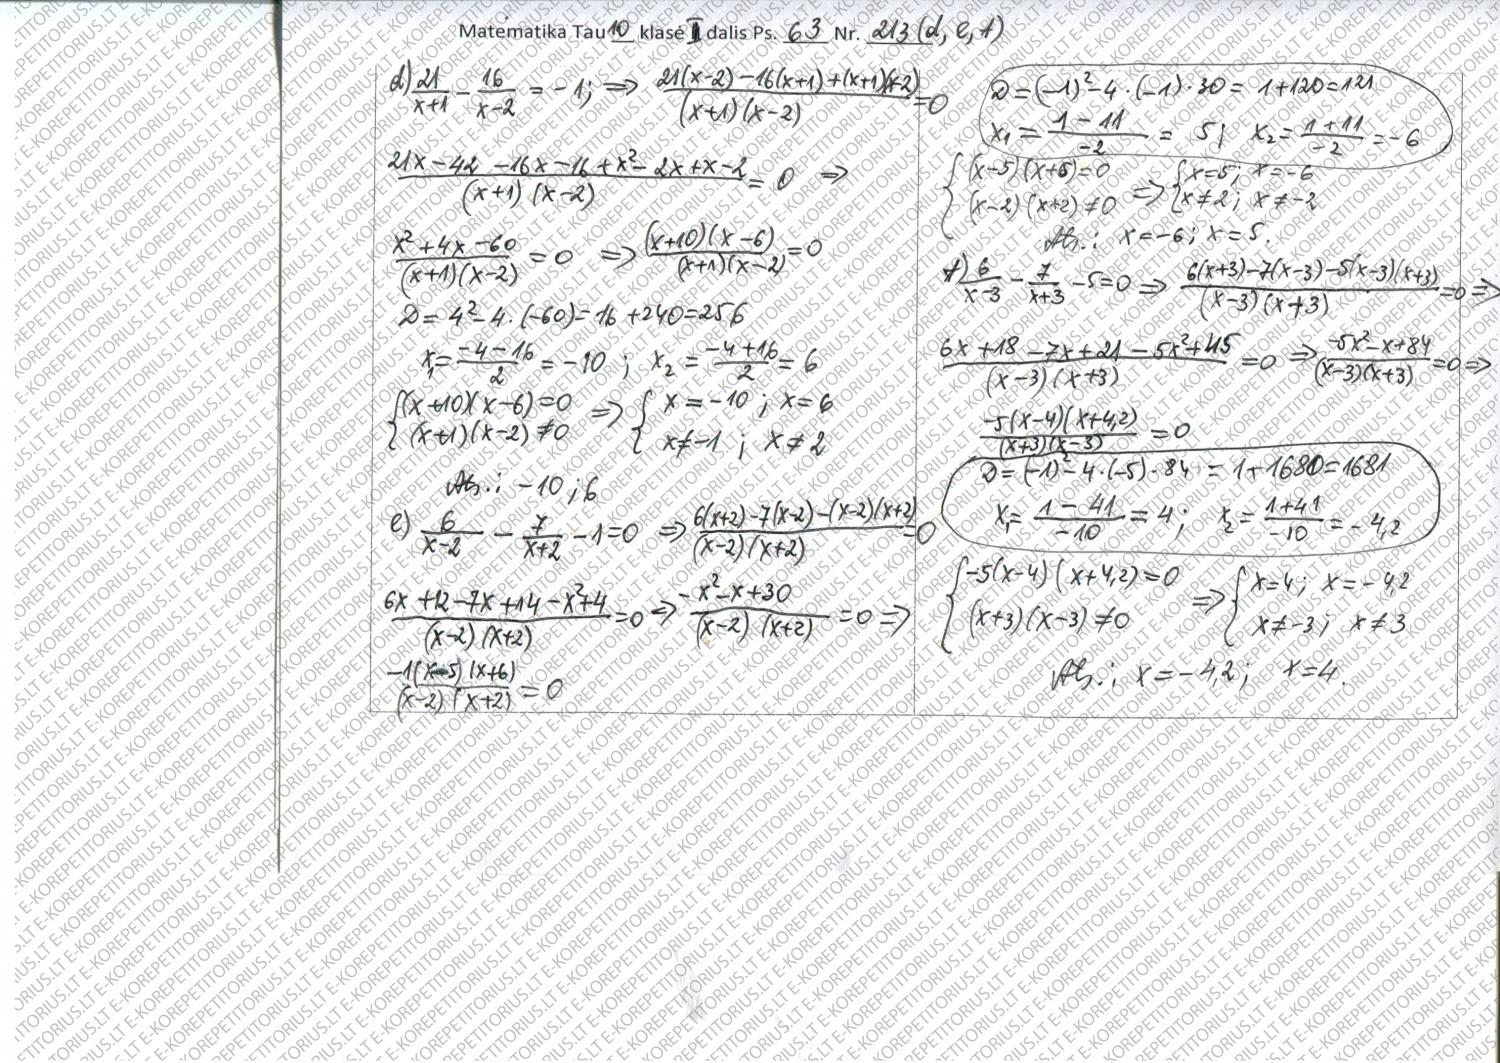 Matematika Tau 10 klasė II dalis Ps. 63 Nr. 213 (d, e, f)
d) 21/(x+1) - 16/(x-2) = -1; => (21(x-2) - 16(x+1) + (x+1)(x-2))/((x+1)(x-2)) = 0
(21x - 42 - 16x - 16 + x² - 2x + x - 2)/((x+1)(x-2)) = 0 =>
(x² + 4x - 60)/((x+1)(x-2)) = 0 => ((x+10)(x-6))/((x+1)(x-2)) = 0
D = 4² - 4·(-60) = 16 + 240 = 256
x₁ = (-4-16)/2 = -10; x₂ = (-4+16)/2 = 6
{(x+10)(x-6) = 0 => {x = -10; x = 6
(x+1)(x-2) ≠ 0 x ≠ -1; x ≠ 2
Ats.: -10; 6
e) 6/(x-2) - 7/(x+2) - 1 = 0 => (6(x+2) - 7(x-2) - (x-2)(x+2))/((x-2)(x+2)) = 0
(6x + 12 - 7x + 14 - x² + 4)/((x-2)(x+2)) = 0 => (-x² - x + 30)/((x-2)(x+2)) = 0 =>
(-1(x-5)(x+6))/((x-2)(x+2)) = 0
D = (-1)² - 4·(-1)·30 = 1 + 120 = 121
x₁ = (1-11)/-2 = 5; x₂ = (1+11)/-2 = -6
{(x-5)(x+6) = 0 => {x = 5; x = -6
(x-2)(x+2) ≠ 0 x ≠ 2; x ≠ -2
Ats.: x = -6; x = 5.
f) 6/(x-3) - 7/(x+3) - 5 = 0 => (6(x+3) - 7(x-3) - 5(x-3)(x+3))/((x-3)(x+3)) = 0 =>
(6x + 18 - 7x + 21 - 5x² + 45)/((x-3)(x+3)) = 0 => (-5x² - x + 84)/((x-3)(x+3)) = 0 =>
(-5(x-4)(x+4,2))/((x+3)(x-3)) = 0
D = (-1)² - 4·(-5)·84 = 1 + 1680 = 1681
x₁ = (1-41)/-10 = 4; x₂ = (1+41)/-10 = -4,2
{-5(x-4)(x+4,2) = 0 => {x = 4; x = -4,2
(x+3)(x-3) ≠ 0 x ≠ -3; x ≠ 3
Ats.: x = -4,2; x = 4.
E-KOREPETITORIUS.LT